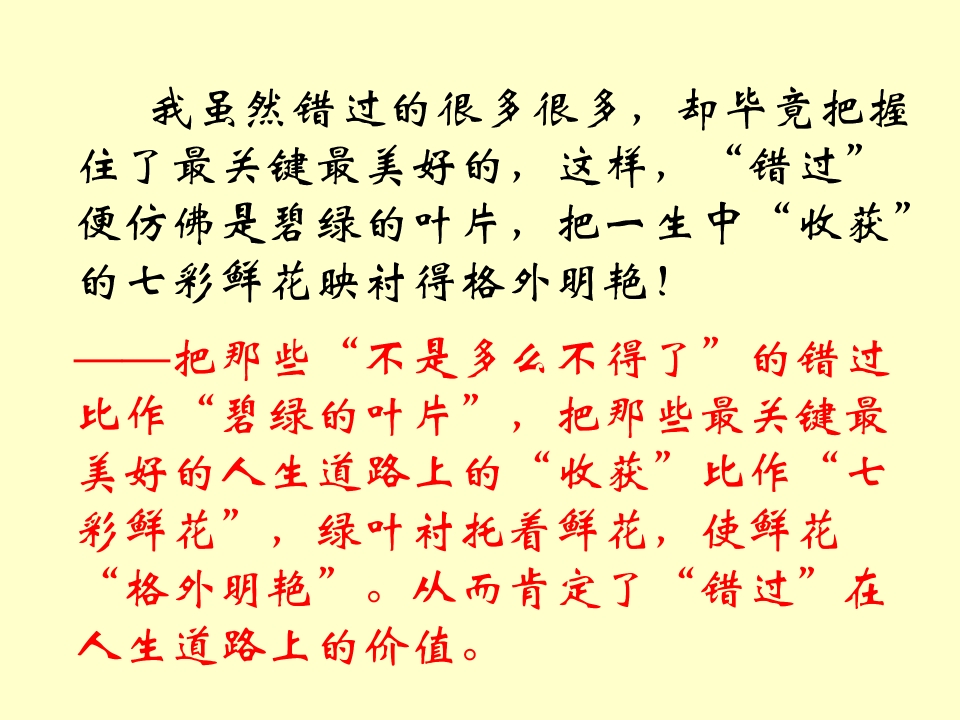 我虽然错过的很多很多，却毕竟把握
住了最关键最美好的，这样，“错过”
便仿佛是碧绿的叶片，把一生中“收获”
的七彩鲜花映衬得格外明艳！
——把那些“不是多么不得了”的错过
比作“碧绿的叶片”，把那些最关键最
美好的人生道路上的“收获”比作“七
彩鲜花”，绿叶衬托着鲜花，使鲜花
“格外明艳”。从而肯定了“错过”在
人生道路上的价值。